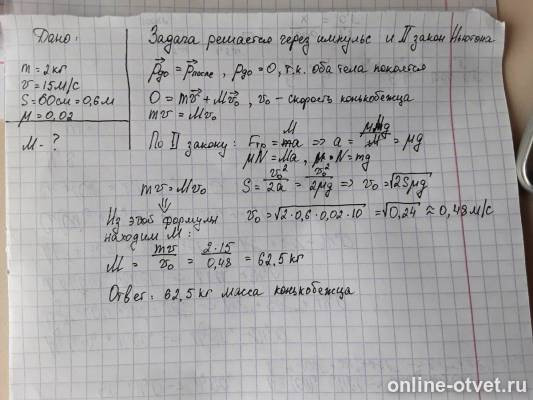 Дано:
m = 2 кг
v = 15 м/с
S = 60 см = 0,6 м
μ = 0,02
M - ?
Задача решается через импульс и II закон Ньютона
p⃗до = p⃗после, pдо = 0, т.к. оба тела покоятся
0 = mv⃗ + Mv⃗₀, v₀ - скорость конькобежца
mv = Mv₀
По II закону: Fтр = Ma => a = μMg/M = μg
μN = Ma, N = mg
mv = Mv₀
S = v₀²/2a = v₀²/2μg => v₀ = √2Sμg
⇓
Из этой формулы
находим M:
v₀ = √2·0,6·0,02·10 = √0,24 ≈ 0,48 м/с
M = mv/v₀ = 2·15/0,48 = 62,5 кг
Ответ: 62,5 кг масса конькобежца
online-otvet.ru